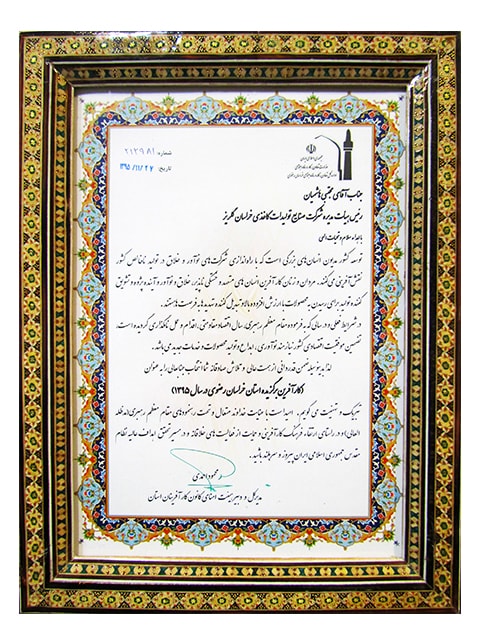 شماره: ۲۱۲۹۸۱
تاریخ: ۱۳۹۵/۱۱/۲۷
جناب آقای مجتبی هاشمیان
رئیس هیات مدیره شرکت صنایع تولیدات کاغذی خراسان گلریز
با اهداء سلام و تحیات الهی
توسعه کشور مدیون انسان‌های بزرگی است که با راه‌اندازی شرکت‌های نوآور و خلاق در تولید ناخالص کشور
نقش‌آفرینی می‌کنند. مردان و زنان کارآفرین انسان‌های متعهد و خستگی ناپذیر، خلاق و نوآور و آینده پژوه و تشویق
کننده تولید برای رسیدن به محصولات با ارزش افزوده بالا و تبدیل کننده تهدیدها به فرصت‌ها هستند.
در شرایط فعلی و در سالی که به فرموده مقام معظم رهبری، سال اقتصاد مقاومتی، اقدام و عمل نامگذاری گردیده است،
تضمین موفقیت اقتصادی کشور نیازمند نوآوری، ابداع و تولید محصولات و خدمات جدید می باشد.
لذا بدینوسیله ضمن قدردانی از همت عالی و تلاش صادقانه شما انتخاب جنابعالی را به عنوان
(کارآفرین برگزیده استان خراسان رضوی در سال ۱۳۹۵)
تبریک و تهنیت می گویم. امید است با عنایت خداوند متعال و تحت رهنمودهای مقام معظم رهبری (مدظله
العالی) و در راستای ارتقاء فرهنگ کارآفرینی و حمایت از فعالیت های خلاقانه و در مسیر تحقق اهداف عالیه نظام
مقدس جمهوری اسلامی ایران پیروز و سربلند باشید.
محمود احمدی
مدیرکل و دبیر هیئت امنای کانون کارآفرینان استان